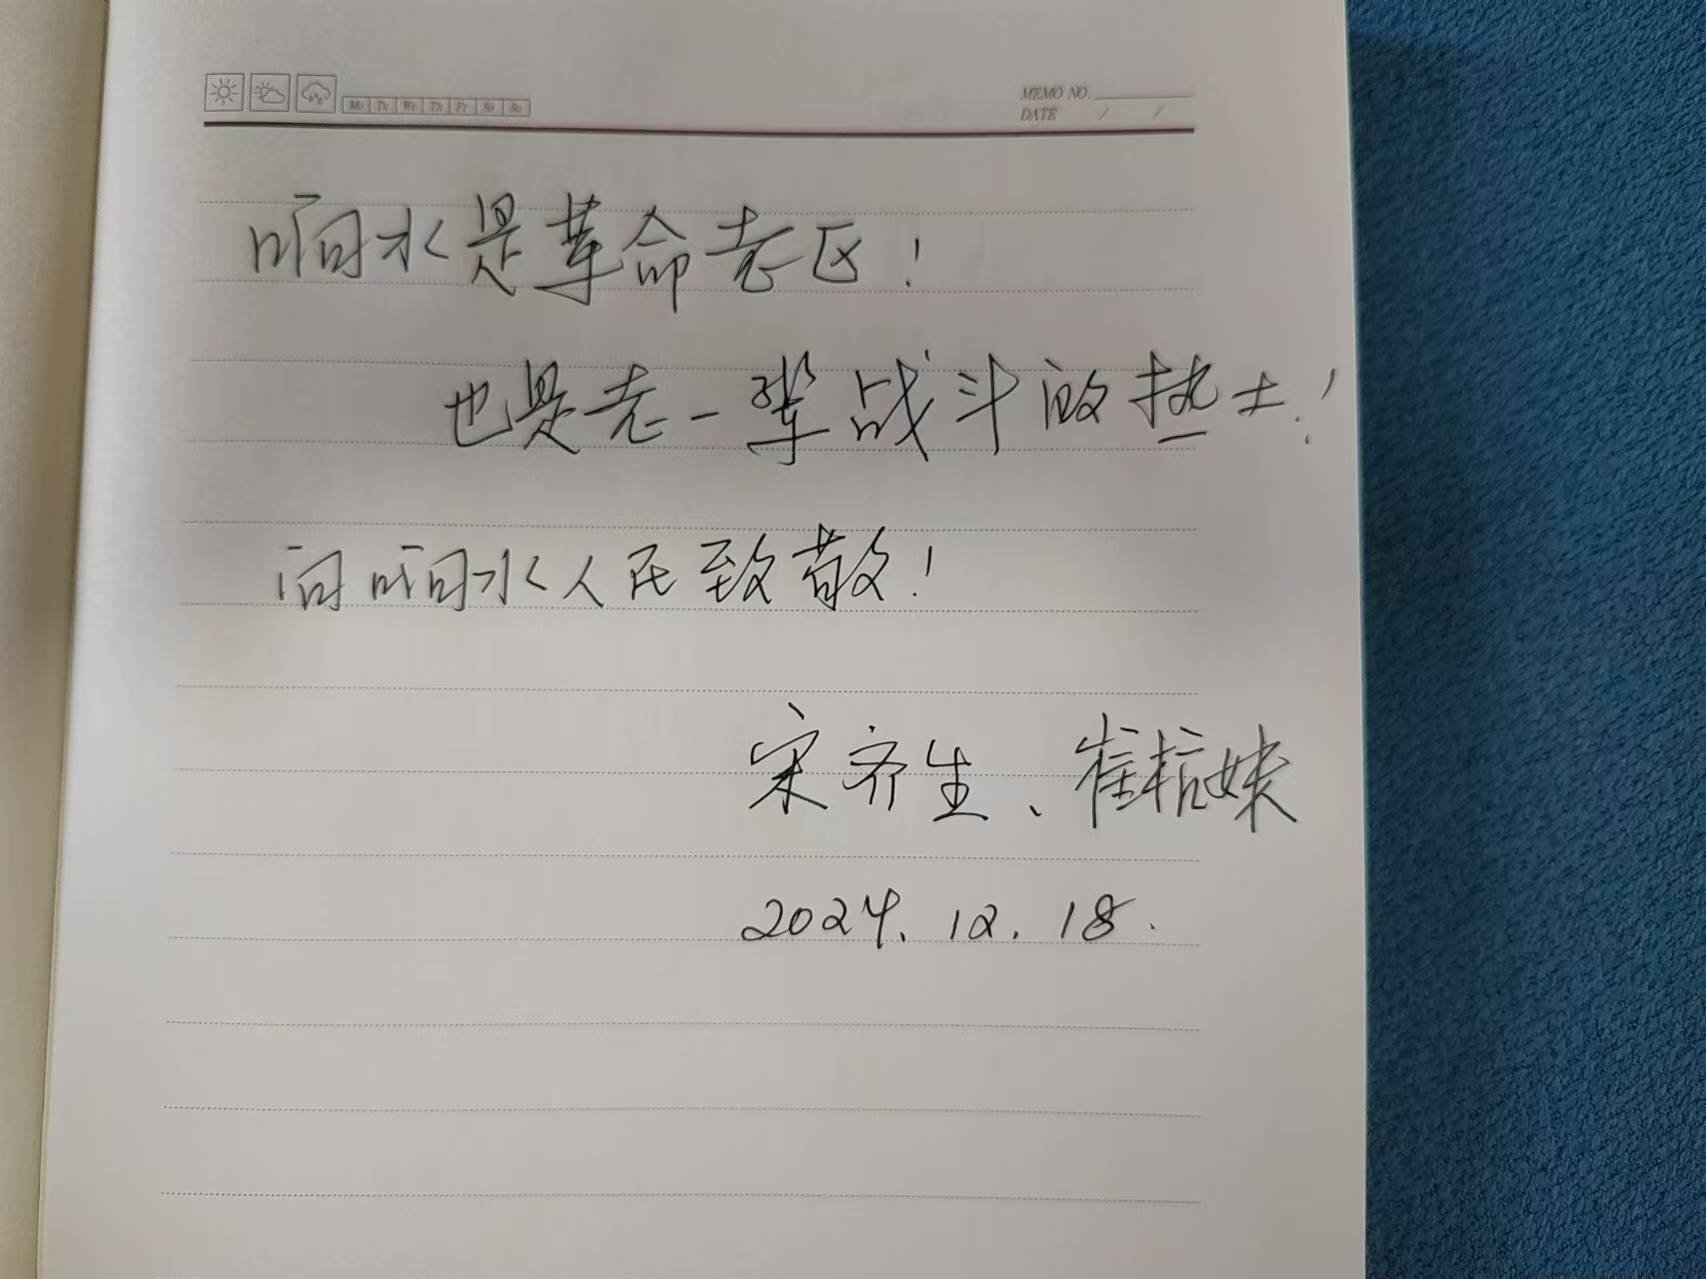 Mo Tu We Th Fr Sa Su
MEMO NO.
DATE / /
响水是革命老区!
也是老一辈战斗的热土!
向响水人民致敬!
宋齐生、崔杭妹
2024.12.18.